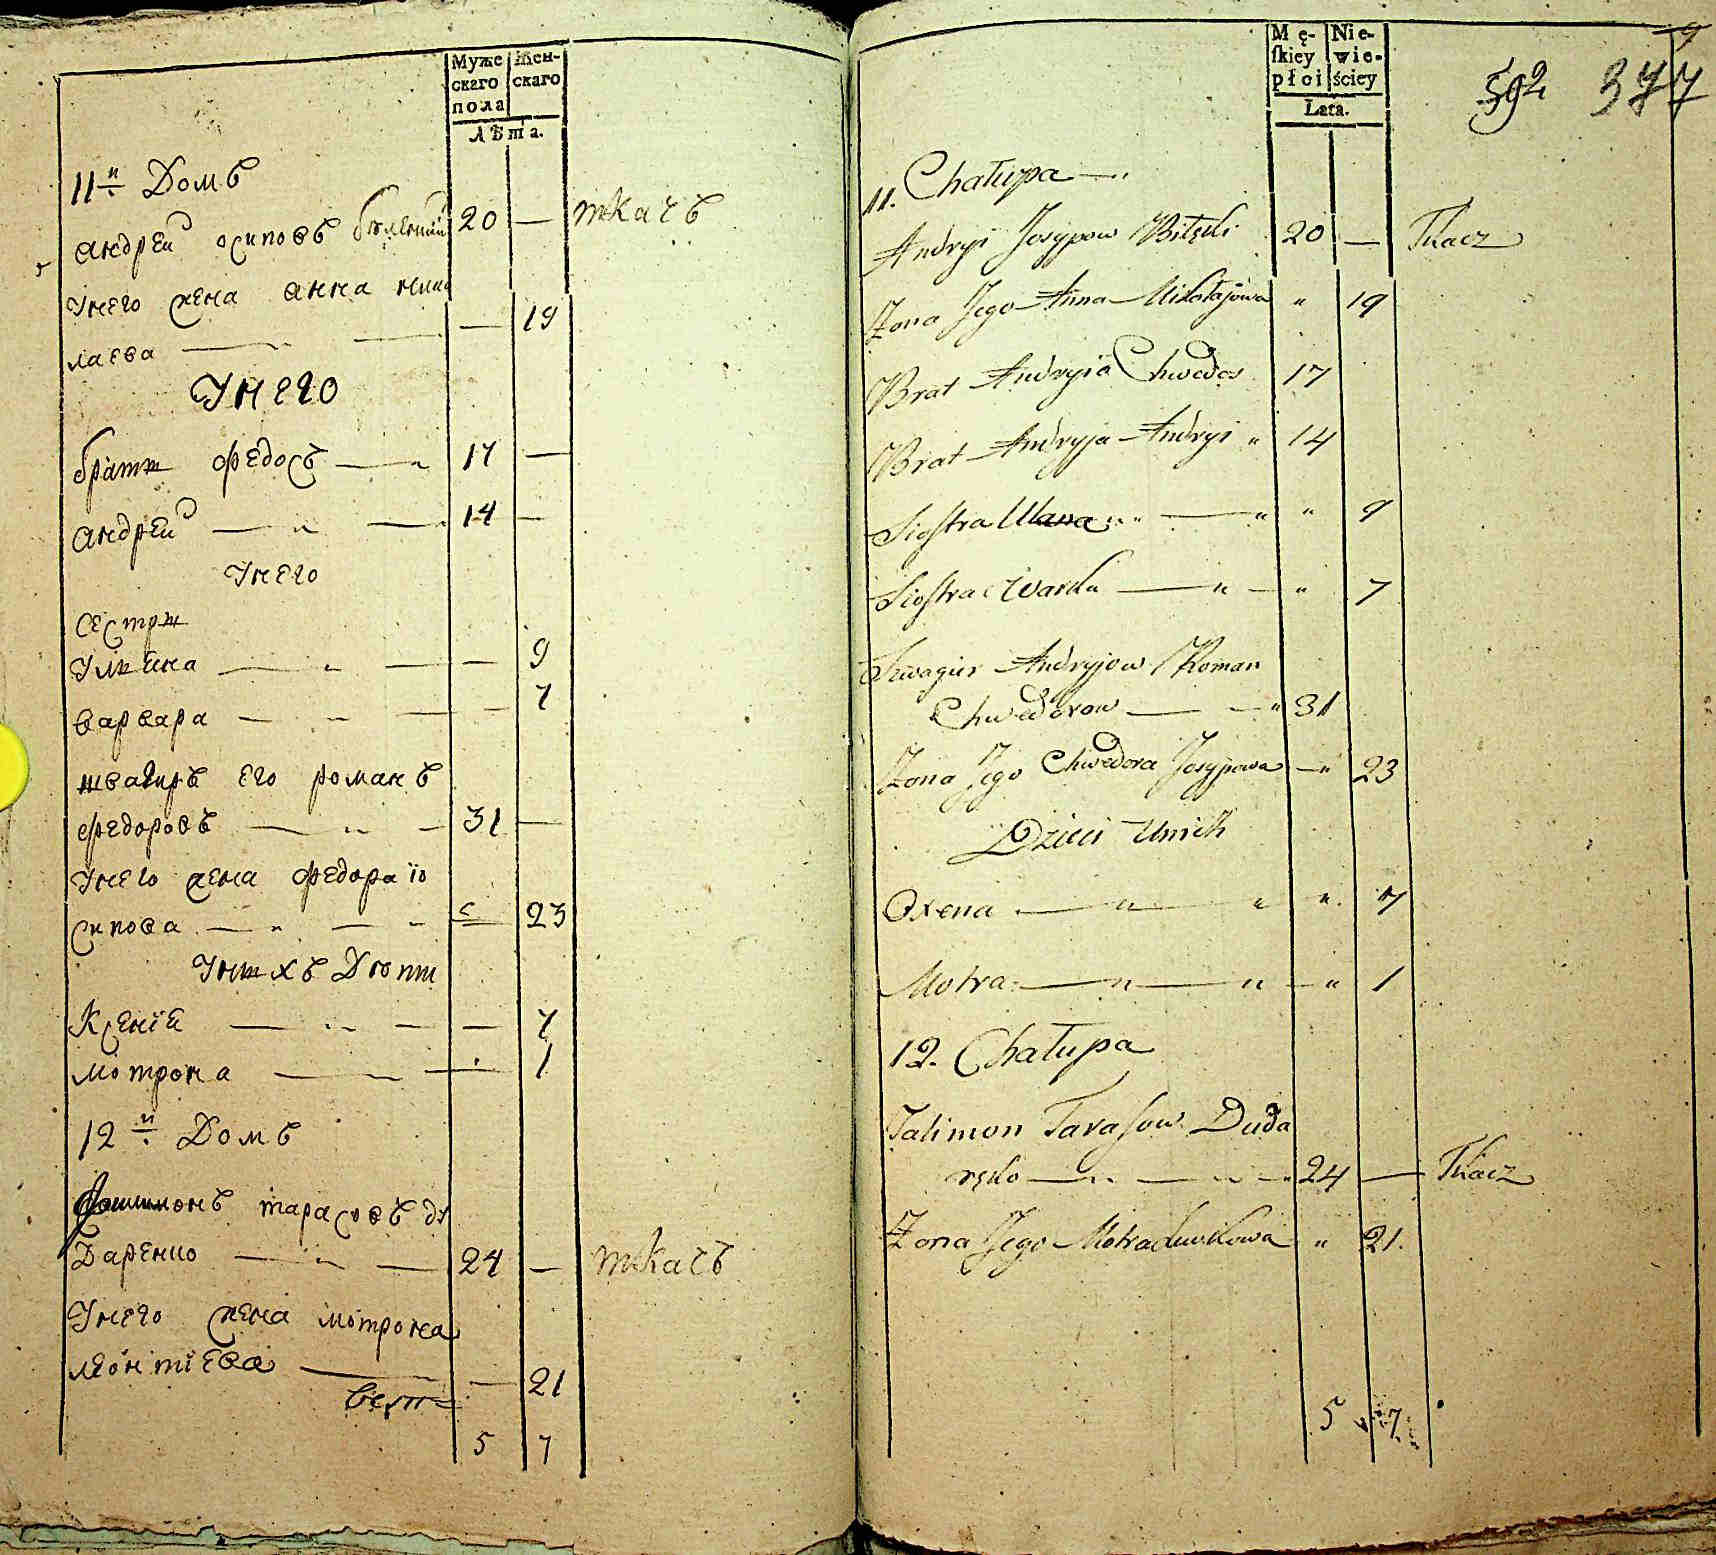 Муже
скаго
пола
Жен-
скаго
Лѣта.
11й Домъ
андрей осиповъ 20 — ткачъ
Унего жена анна нико
лаева — 19
Унего
братъ Федосъ — 17 —
андрей — 14 —
Унего
сестры
Ульяна — 9
варвара — 7
швагиръ его романъ
Федоровъ — 31 —
Унего жена Федора їо
сипова — 23
Унихъ Дѣти
Ксенія — 7
мотрона — 1
12й Домъ
тарасовъ ду
Даренко — 24 — ткачъ
Унего жена мотрона
леонтїева — 21
5 7
Mę-
ſkiey
płci
Nie-
wie-
ściey
Lata.
592 377
11. Chałupa
Andryi Josypow Bilęcki 20 — Tkacz
Zona Jego Anna Mikołajowa " 19
Brat Andryia Chwedos 17
Brat Andryja Andryi " 14
Siostra Ulana " 9
Siostra Warka — " 7
Szwagier Andryjow Roman
Chwedorow — " 31
Zona Jego Chwedora Josypowa — " 23
Dzieci Unich
Oxena — " " " 7
Motra — " — " — " 1
12. Chałupa
Talimon Tarasow Duda
ręko — 24 — Tkacz
Zona Jego Motra Lewkowa " 21.
5 7